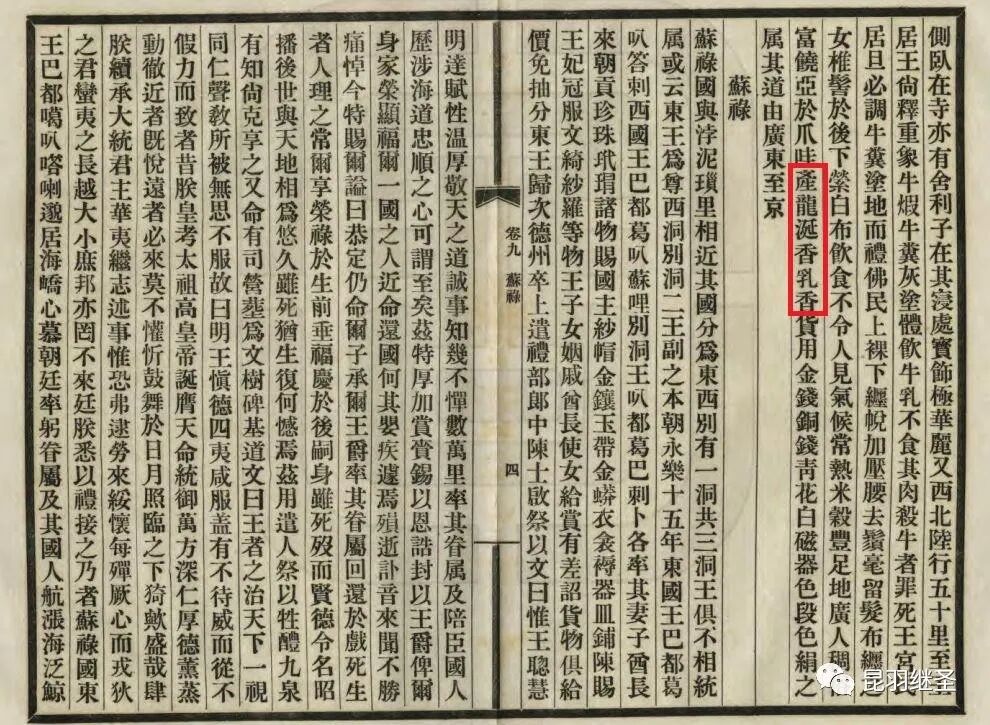 側臥在寺亦有舍利子在其寖處寶飾極華麗又西北陸行五十里至至
居王尙釋重象牛煆牛糞灰塗體飮牛乳不食其肉殺牛者罪死王宮民
居旦必調牛糞塗地而禮佛民上裸下纏帨加壓腰去鬚毫留髮布纏之
女椎髻於後下縈白布飮食不令人見氣候常熱米穀豐足地廣人稠
富饒亞於爪哇產龍涎香乳香貨用金錢銅錢靑花白磁器色段色絹之
属其道由廣東至京
蘇祿
蘇祿國與浡泥瑣里相近其國分爲東西別有一洞共三洞王俱不相統
属或云東王爲尊西洞別洞二王副之本朝永樂十五年東國王巴都葛
叭答剌西國王巴都葛叭蘇哩別洞王叭都葛巴剌卜各率其妻子酋長
來朝貢珍珠玳瑁諸物賜國主紗帽金鑲玉帶金蟒衣衾褥器皿鋪陳賜
王妃冠服文綺紗羅等物王子女姻戚酋長使女給賞有差詔貨物俱給
價免抽分東王歸次德州卒上遣禮部郎中陳士啟祭以文曰惟王聰慧
卷九 蘇祿
四
明達賦性温厚敬天之道誠事知幾不憚數萬里率其眷属及陪臣國人
歷涉海道忠順之心可謂至矣茲特厚加賞賚錫以恩誥封以王爵俾爾
身家榮顯福爾一國之人近命還國何其嬰疾遽焉殞逝訃音來聞不勝
痛悼今特賜爾諡曰恭定仍命爾子承爾王爵率其眷屬回還於戲死生
者人理之常爾享榮祿於生前垂福慶於後嗣身雖死歿而賢德令名昭
播後世與天地相爲悠久雖死猶生復何憾焉茲用遣人祭以牲醴九泉
有知尙克享之又命有司營塟爲文樹碑墓道文曰王者之治天下一視
同仁聲敎所被無思不服故曰明王愼德四夷咸服盖有不待威而從不
假力而致者昔朕皇考太祖高皇帝誕膺天命統御萬方深仁厚德薰蒸
動徹近者旣悅遠者必來莫不懽忻鼓舞於日月照臨之下猗歟盛哉肆
朕纘承大統君主華夷繼志述事惟恐弗逮勞來綏懷每殫厥心而戎狄
之君蠻夷之長越大小庶邦亦罔不來廷朕悉以禮接之乃者蘇祿國東
王巴都噶叭嗒喇邈居海嶠心慕朝廷率躬眷屬及其國人航漲海泛鯨
昆羽继圣